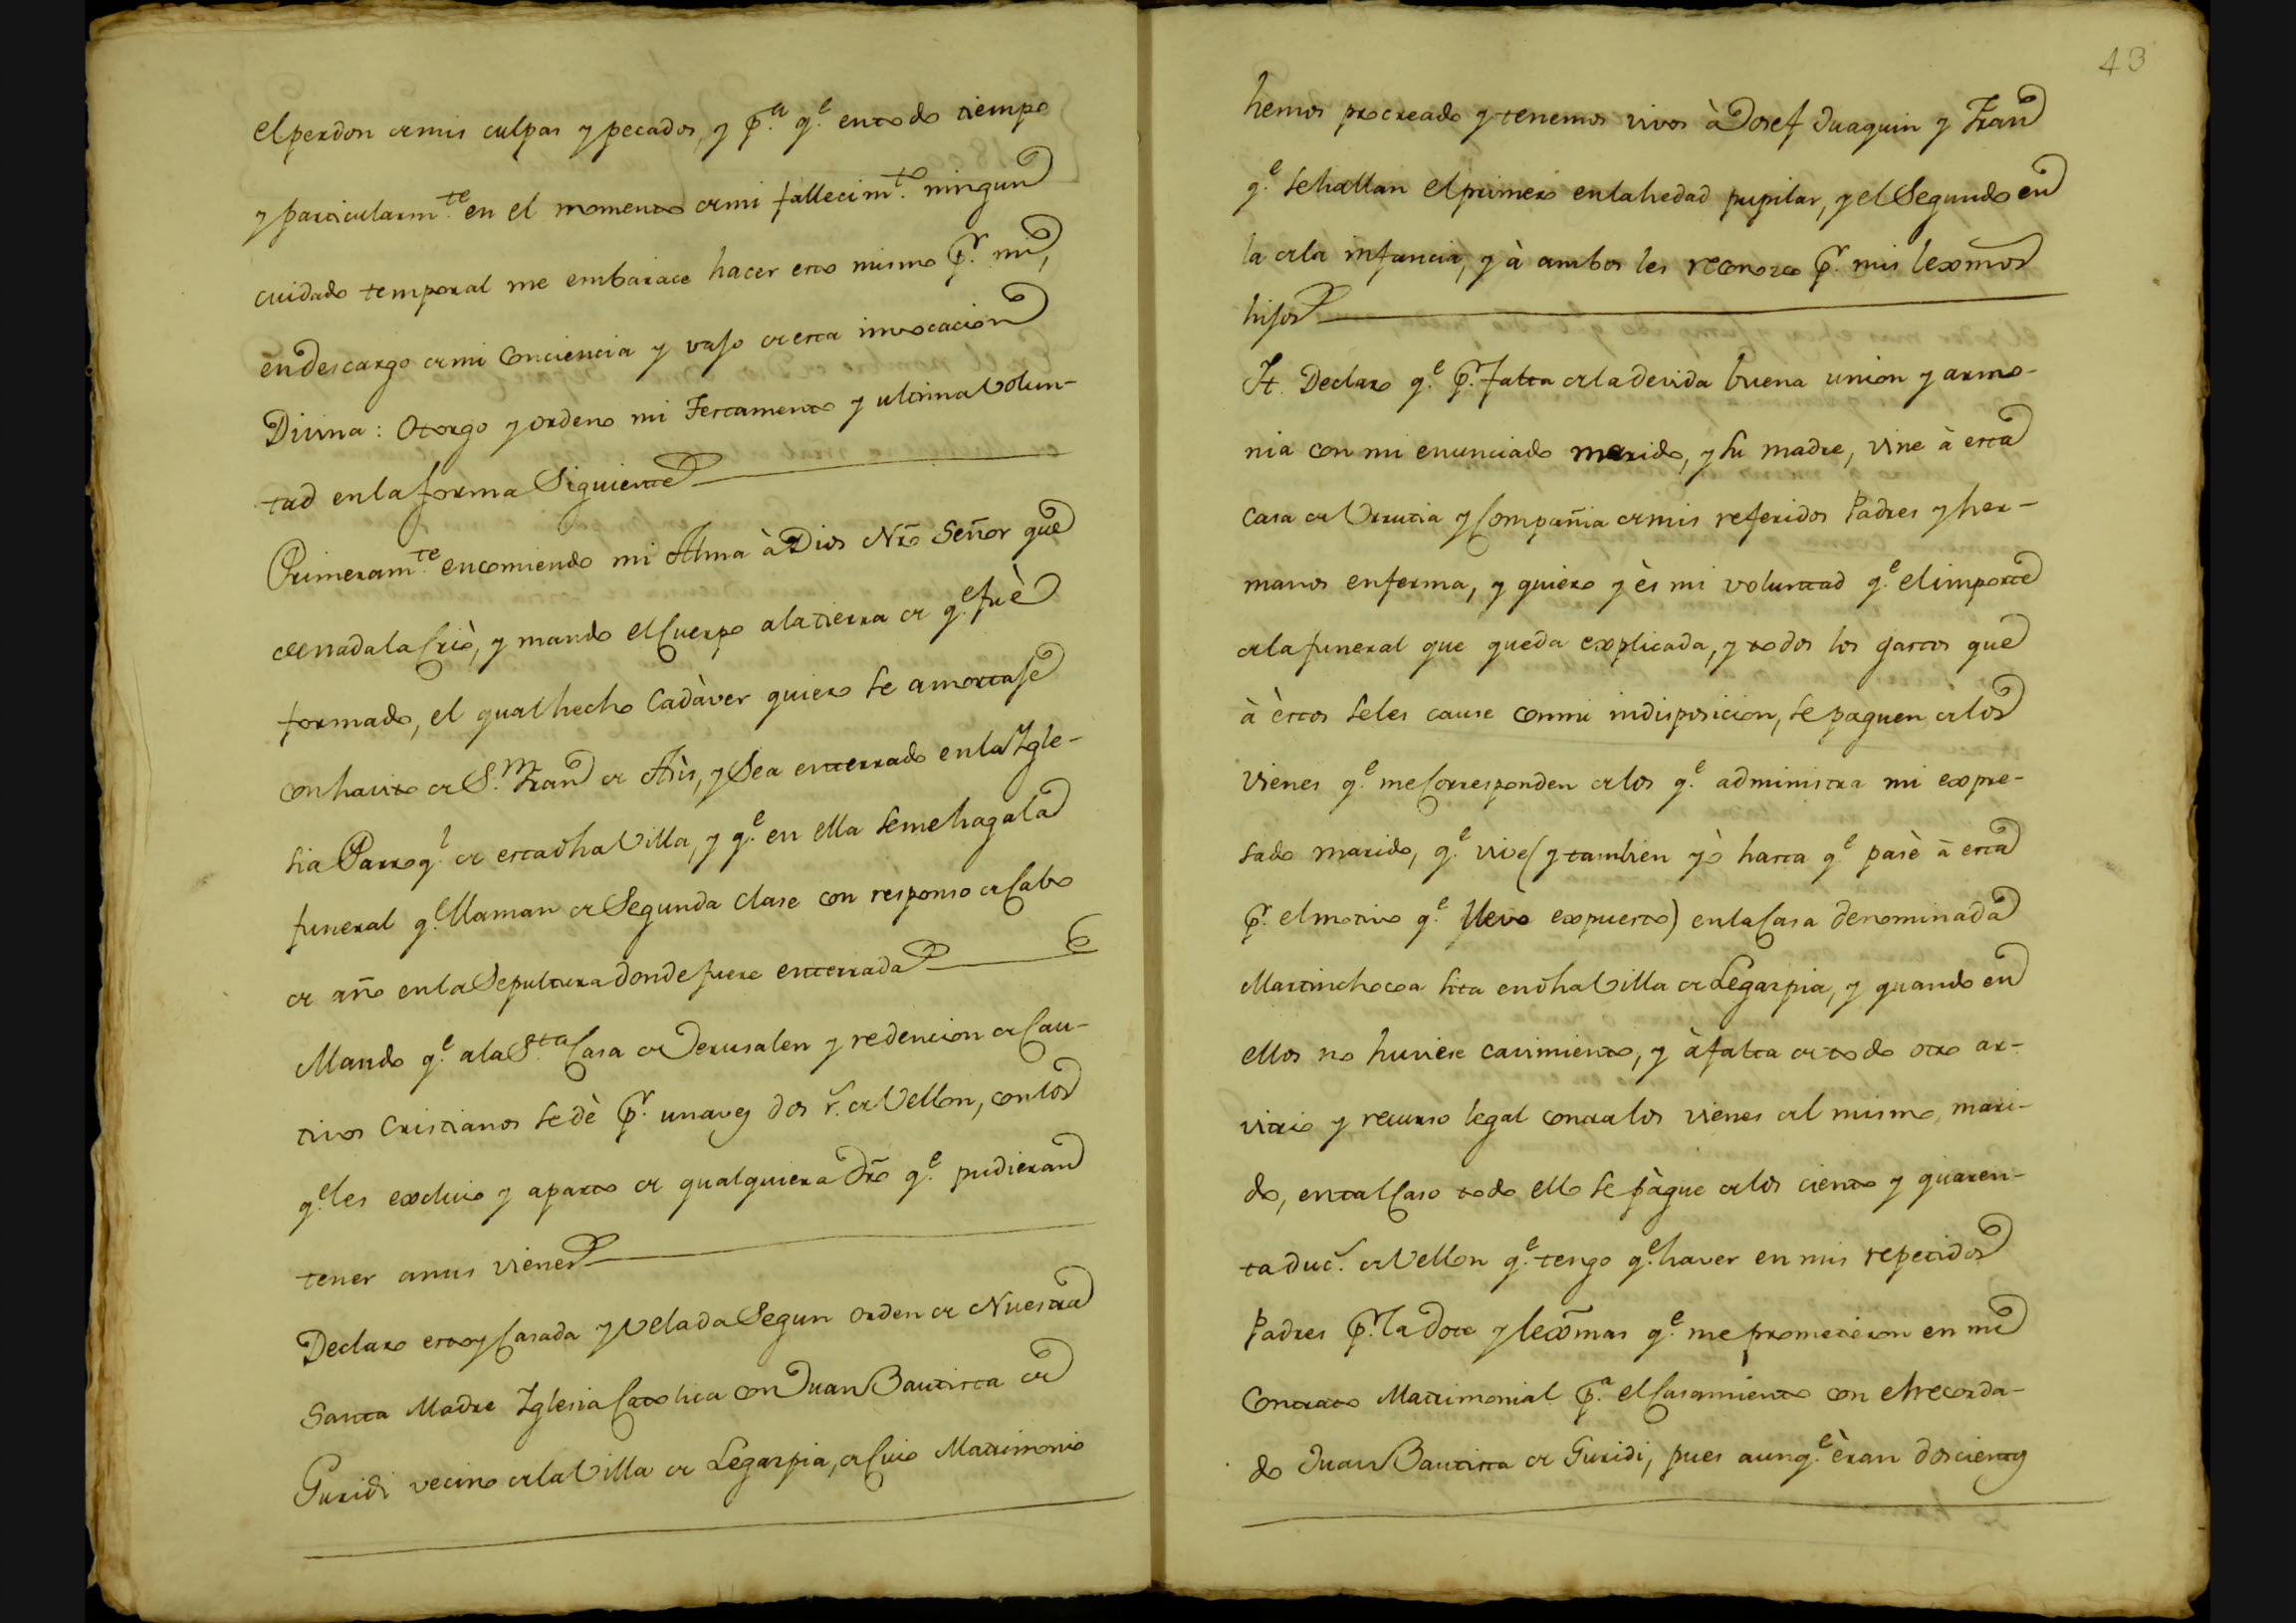 el perdon de mis culpas y pecados, y p.ª q.e en todo tiempo
y particularm.te en el momento de mi fallecim.to ningun
cuidado temporal me embarace hacer esto mismo p.r mi,
en descargo de mi Conciencia y vajo de esta invocacion
Divina: Otorgo y ordeno mi Testamento y ultima Volun-
tad en la forma Siguiente
Primeram.te encomiendo mi Alma à Dios Nrõ Señor que
de nada la Criò, y mando el Cuerpo a la tierra de q.e fuè
formado, el qual hecho Cadàver quiero se amortaje
con havito de S.n Fran.co de Asìs, y Sea enterrado en la Igle-
sia Parroq.l de esta dha Villa, y q.e en ella se me haga la
funeral q.e llaman de Segunda clase con responso de Cabo
de año en la Sepultura donde fuere enterrada
Mando q.e a la S.ta Casa de Jerusalen y redencion de Cau-
tivos Cristianos se dè p.r una vez dos r.s de Vellon, con los
q.e les excluio y aparto de qualquiera drõ q.e pudieran
tener a mis vienes
Declaro estoy Casada y Velada Segun orden de Nuestra
Santa Madre Iglesia Catolica con Juan Bautista de
Guridi vecino de la Villa de Legazpia, de Cuio Matrimonio
43
hemos procreado y tenemos vivos à Josef Juaquin y Fran.co
q.e se hallan el primero en la hedad pupilar, y el Segundo en
la de la infancia, y à ambos les reconozco p.r mis lexmos
hijos
It. Declaro q.e p.r falta de la devida buena union y armo-
nia con mi enunciado marido, y su madre, vine à esta
Casa de Urrutia y Compañia de mis referidos Padres y her-
manos enferma, y quiero y ès mi voluntad q.e el importe
de la funeral que queda explicada, y todos los gastos que
à èstos se les cause con mi indisposicion, se paguen de los
vienes q.e me Corresponden de los q.e administra mi expre-
sado marido, q.e vive (y tambien yò hasta q.e pasè à esta
p.r el motivo q.e llevo expuesto) en la Casa denominada
Martinchocoa sita en dha Villa de Legazpia, y quando en
ellos no huviese cavimiento, y à falta de todo otro ar-
vitrio y recurso legal contra los vienes del mismo mari-
do, en tal Caso todo ello se pàgue de los ciento y quaren-
ta duc.s de Vellon q.e tengo q.e haver en mis repetidos
Padres p.r la dote y lexmas q.e me prometieron en mi
Contrato Matrimonial p.ª el Casamiento con el recorda-
do Juan Bautista de Guridi, pues aunq.e èran doscientos